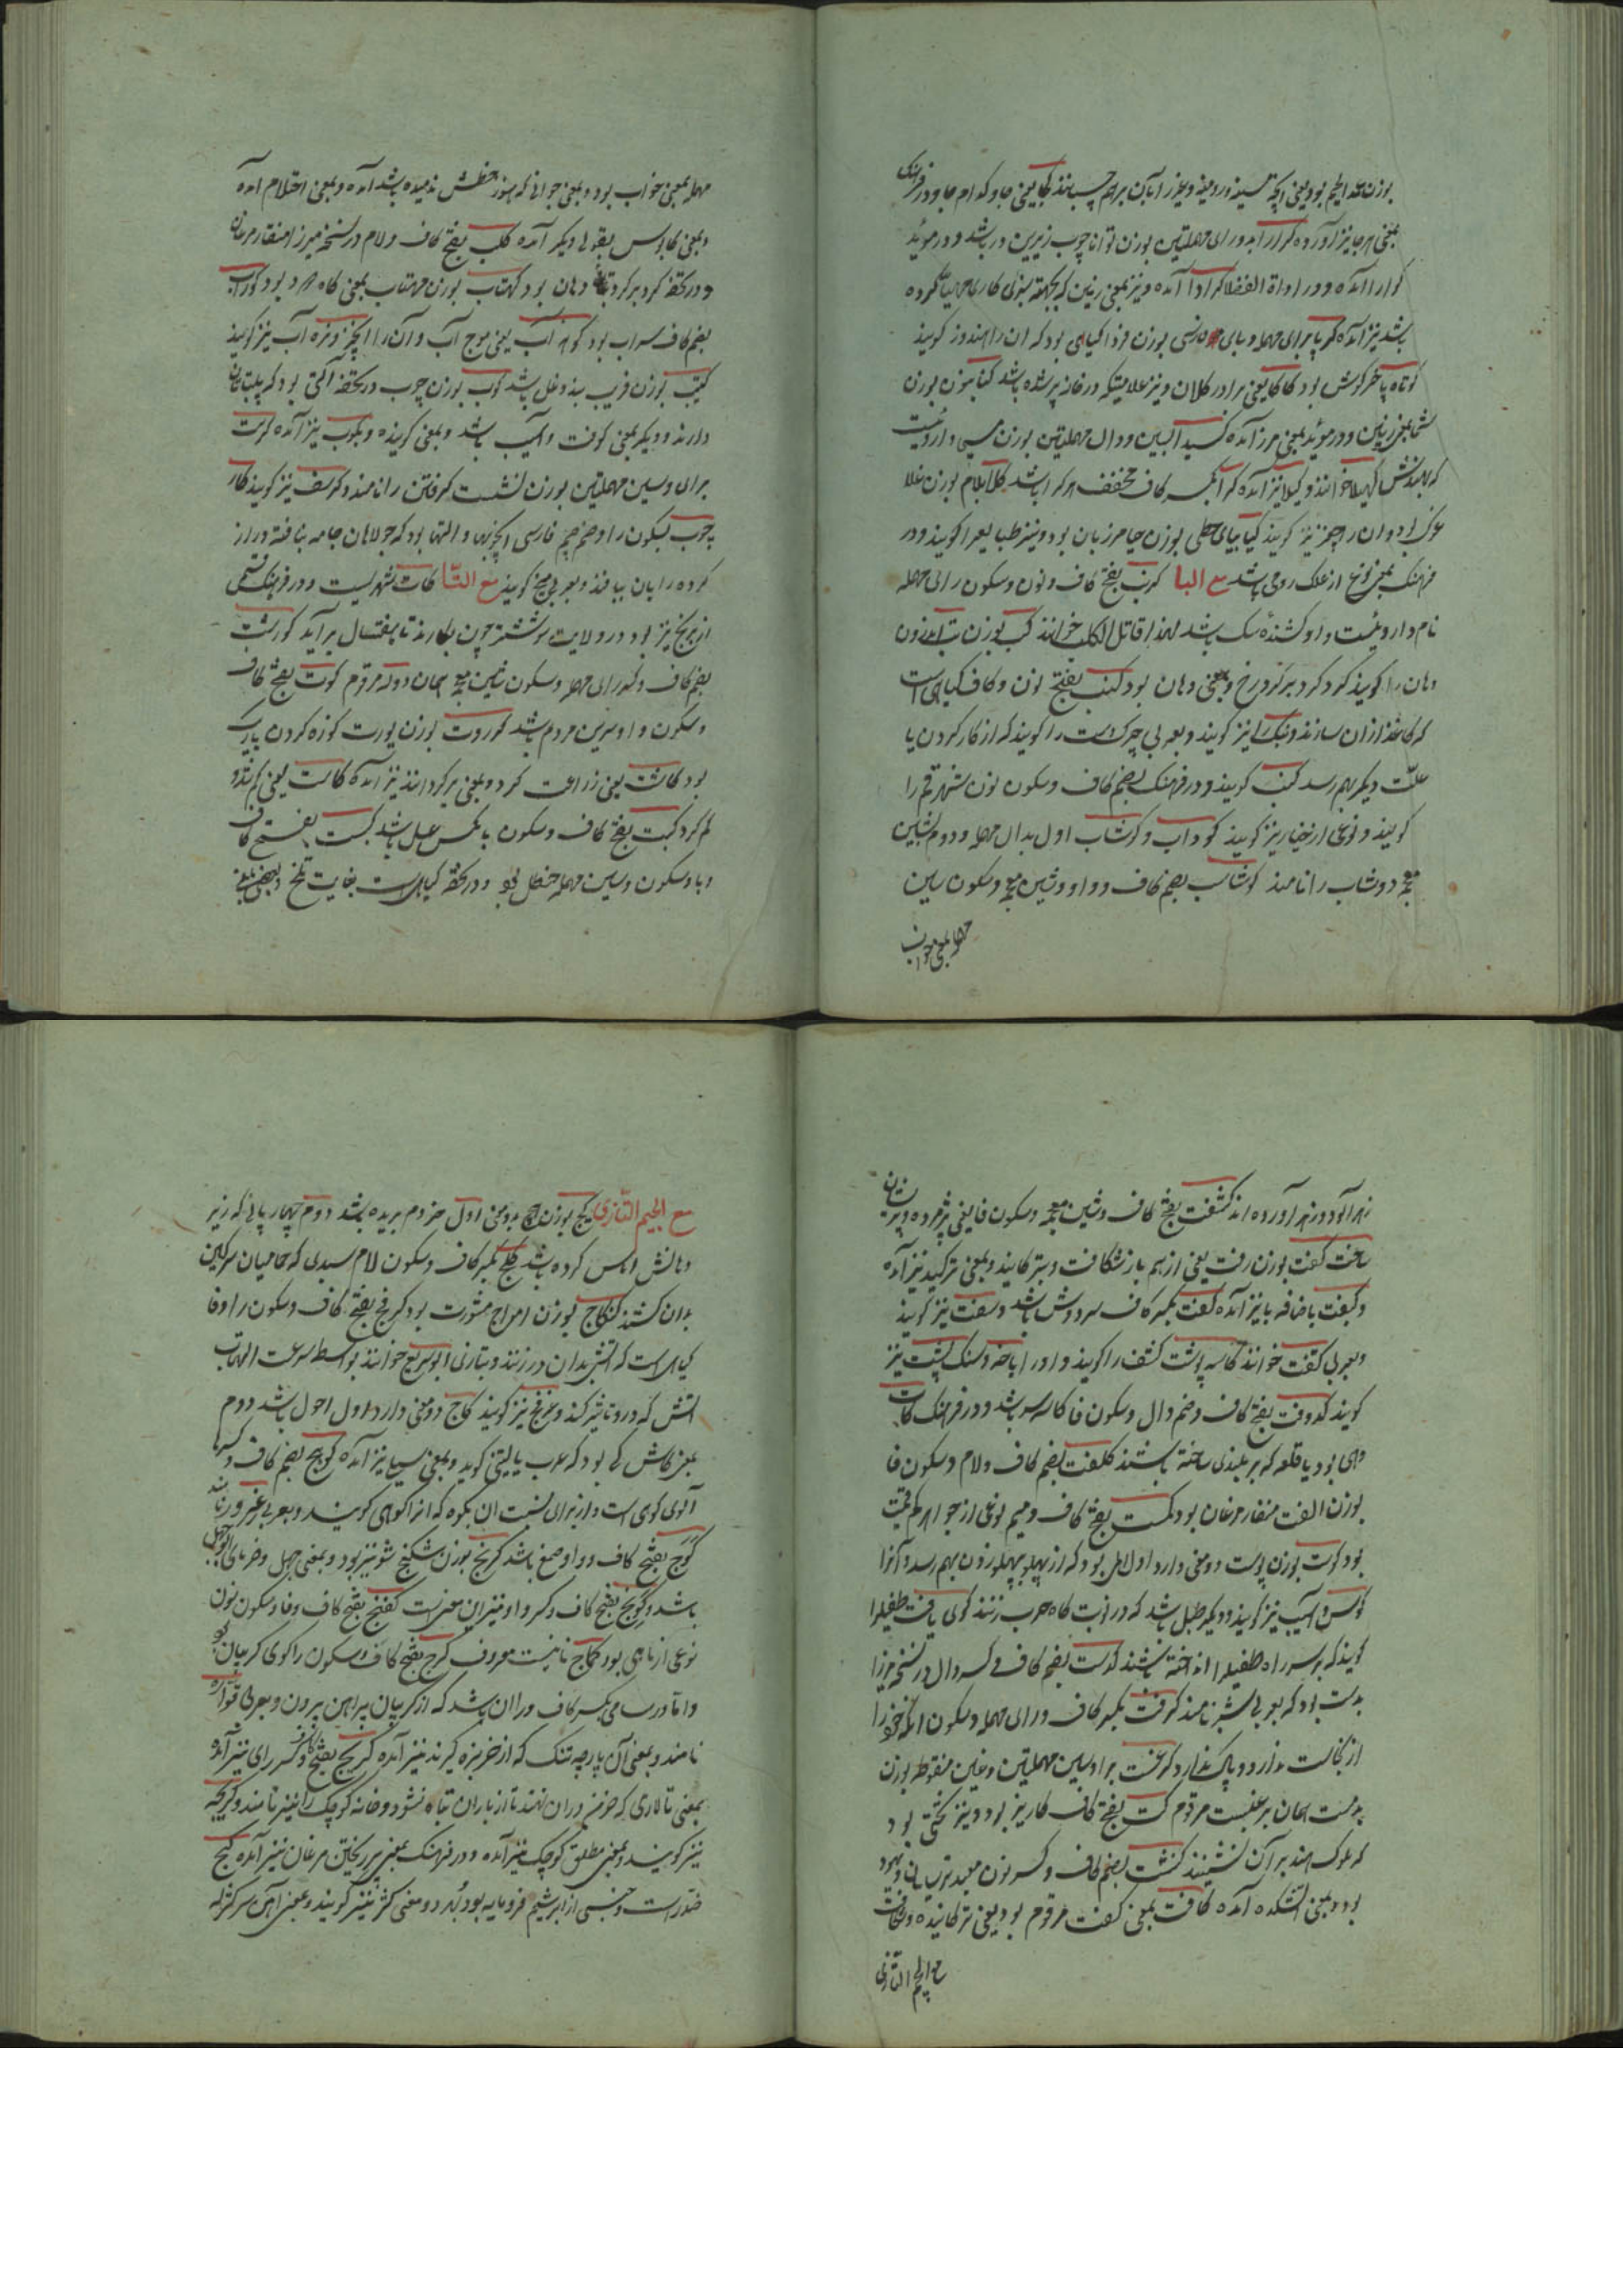 بمعنی هر جا نیز آورده کرار ابدو رای مهملتین بوزن توانا چوب زیرین در باشد و در مؤید
کوارا آمده و در اداة الفضلا کرادا آمده و نیز بمعنی زمین که بجهة سبزی کاری مهیا کرده
باشد نیز آمده کرپا برای مهمله و بای فارسی بوزن فردا کیاهی بود که آن را هندوز کویند
کوتاه پا خرکوش بود کاکا یعنی برادر کلان و نیز غلامیکه در خانه پیر شده باشد
بمعنی زمین و در مؤید بمعنی مرز آمده کسیدا بسین و دال مهملتین بوزن مسیحا داروئیست
که بهندش کهیلا خوانند و کیلا نیز آمده کرا بکسر کاف مخفف هر کرا باشد کلا بلام بوزن غلا
غوک بود و آن را چغز نیز کویند کیا بیای حطی بوزن حیا مرزبان بود و نیز طبایع را کویند و در
فرهنک بمعنی نوع از علک رومی باشد مع البا کرنب بفتح کاف و نون و سکون رای مهمله
نام داروئیست و او کشندهٔ سک باشد لهذا قاتل الکلب خوانند کب بوزن شب اندرون
دهان را کویند کرد کرد بر کرد رخ و بمعنی دهان بود کنب بفتح نون و کاف کیاهی است
که کاغذ از آن سازند و بنک را نیز کویند و بعربی چرک دست را کویند که از کار کردن یا
علّت دیکر بهم رسد کنب کویند و در فرهنک بضم کاف و سکون نون شهر قم را
کویند و نوعی از خیار نیز کویند کوداب و کوشاب اول بدال مهمله و دوم بشین
معجمه دوشاب را نامند کوشاسب بضم کاف و واو و شین معجمه و سکون سین
مهمله بمعنی خواب
مهمله بمعنی خواب بود و بمعنی جوانی که هنوز خطش ندمیده باشد آمده و بمعنی احتلام آمده
و بمعنی کابوس بقولی دیکر آمده کلب بفتح کاف و لام در نسخهٔ میرزا منقار مرغان
و در تحفه کرد بر کرد دهان بود کهتاب بوزن مهتاب بمعنی کاه دود بود کوراب
بضم کاف سراب بود کوهه آب یعنی موج آب و آن را آبخیز و نره آب نیز کویند
کیب بوزن فریب بند و غل باشد کوب بوزن چوب در تحفه آلتی بود که پیلبانان
دارند و دیکر بمعنی کوفت و آسیب باشد و بمعنی کوبنده و بکوب نیز آمده کرست
برای و سین مهملتین بوزن نشست کرفتن را نامند و کرسف نیز کویند کار
چوب بسکون را و ضم جیم فارسی آنچوبها و آلتها بود که جولاهان جامه بافته دراز
کرده را بآن ببافند و بعربی میخ کویند مع التّا کات شهریست و در فرهنک قسمی
از برنج نیز بود و در ولایت شوشتر چون بکارند تا هفت سال بر آید کورشت
بضم کاف و کسر رای مهمله و سکون شین معجمه همان دوله مرقوم کوت بفتح کاف
و سکون واو سرین مردم باشد کوروت بوزن پورت کوزه کردن باریک
بود کاشت یعنی زراعت کرد و بمعنی برکردانند نیز آمده کالست یعنی
کم کرد کبت بفتح کاف و سکون با مکس عسل باشد کبست بفتح کاف
و با و سکون و سین مهمله حنظل بود و در تحفه کیاهی است بغایت تلخ و بعضی بمعنی
زهرآلود و زهر آورده اند کشفت بفتح کاف و شین معجمه و سکون فا یعنی پژمرده و پریشان
ساخت کفت بوزن رفت یعنی از هم باز شکافت و بترکانید و بمعنی ترکید نیز آمده
و بکفت باضافه با نیز آمده کفت بکسر کاف سر دوش باشد و سفت نیز کویند
و بعربی کتف خوانند کاسه پشت کشف را کویند و او را باخه و سنک پشت نیز
کویند کدوفت بفتح کاف و ضم دال و سکون فا کاسه سر باشد و در فرهنک کات
دهی بود یا قلعه که بر بلندی ساخته باشند کلفت بضم کاف و لام و سکون فا
بوزن الفت منقار مرغان بود کمست بفتح کاف و میم نوعی از جواهر کم قیمت
بود کوست بوزن پوست دو معنی دارد اول المی بود که از پهلو بپهلو زدن بهم رسد و آنرا
کوس و آسیب نیز کویند و دیکر طبل باشد که در نوبت کاه حرب زنند کوی یافت طفیلرا
کویند که بر سر راه طفیلرا انداخته باشند کدست بفتح کاف و کسر دال در نسخهٔ میرزا
بدست بود که بعربی شبر نامند کرفت بکسر کاف و رای مهمله و سکون آنکه خود را
از نجاست ندارد و پاک نکذارد کرغست برا و سین مهملتین و غین منقوطه بوزن
بدمست همان برغست مرقوم کت بفتح کاف کاریز بود و نیز تختی بود
که ملوک هند بر آن نشینند کنشت بضم کاف و کسر نون معبد ترسایان و یهود
بود و بمعنی آتشکده آمده کافت بمعنی کفت مرقوم بود یعنی ترکانیده و شکافت
مع الجیم التّازی
مع الجیم التّازی کبج بوزن دو معنی اول خر دم بریده باشد دوم چهارپائی که زیر
دهانش آماس کرده باشد کلج بکسر کاف و سکون لام سبدی که حمامیان سرکین
بدان کشند کنکاج بوزن امواج مشورت بود کرفج بفتح کاف و سکون را و فا
کیاهی است که آتش بدان در زنند و بتازی ابو سریع خوانند بواسطه سرعت التهاب
آتش که در و تاثیر کند و عرفج نیز کویند کاج دو معنی دارد اول احول باشد دوم
بمعنی کاش کی بود که عرب یا لیتنی کوید و بمعنی سیلی نیز آمده کوهج بضم کاف و کسر ها
آلوی کوهی است و از برای نسبت آن بکوه که آنرا آلوی کوهی کویند و بعربی زعرور باشد
کوج بفتح کاف و واو صمغ باشد کربج بوزن شکنج شونیز بود و بمعنی جهل
باشد و کونج بفتح کاف و کسر واو نیز بدین معنی است کفنج بفتح کاف و فا و سکون نون
نوعی از ماهی بود کماج نانیست معروف کرج بفتح کاف و سکون را کوی کریبان بود
و اما در سامی بکسر کاف و را آن باشد که از کریبان پیراهن بیرون و بعربی قواره
نامند و بمعنی آن پارچه تنک که از خربزه کیرند نیز آمده کریج بفتح کاف و کسر رای نیز آمده
بمعنی تالاری که خرمن در آن نهند تا از باران تباه نشود و خانه کوچک را نیز نامند و کریجه
نیز کویند و بمعنی مطلق کوچک نیز آمده و در فرهنک بمعنی پر ریختن مرغان نیز آمده کج
ضد راست و جنسی از ابریشم فرومایه بود بهر دو معنی کژ نیز کویند و بمعنی آهن سر کژ که